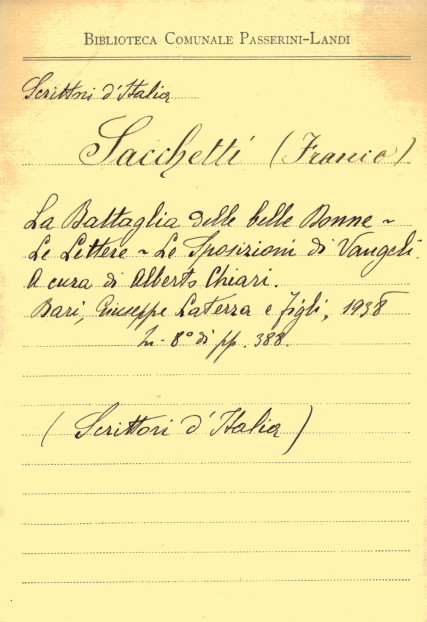 BIBLIOTECA COMUNALE PASSERINI-LANDI
Scrittori d'Italia
Sacchetti (Franco)
La Battaglia delle belle Donne -
Le Lettere - Le Sposizioni di Vangeli.
A cura di Alberto Chiari.
Bari, Giuseppe Laterza e figli, 1938
In-8° di pp. 388.
(Scrittori d'Italia)